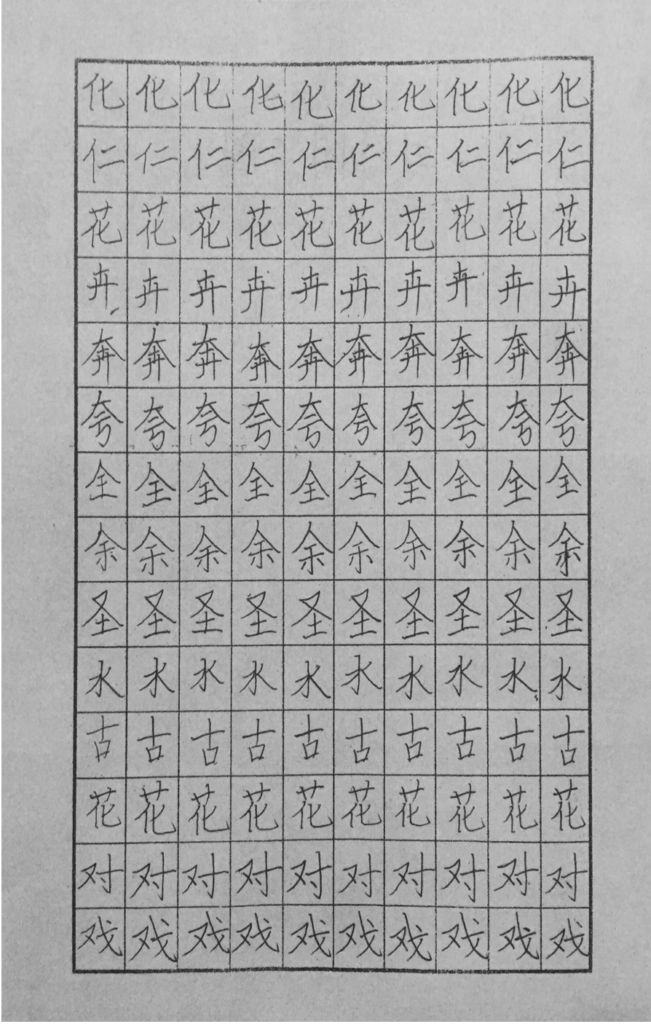 化化化化化化化化化化
仁仁仁仁仁仁仁仁仁仁
花花花花花花花花花花
卉卉卉卉卉卉卉卉卉卉
奔奔奔奔奔奔奔奔奔奔
夸夸夸夸夸夸夸夸夸夸
全全全全全全全全全全
余余余余余余余余余余
圣圣圣圣圣圣圣圣圣圣
水水水水水水水水水水
古古古古古古古古古古
花花花花花花花花花花
对对对对对对对对对对
戏戏戏戏戏戏戏戏戏戏